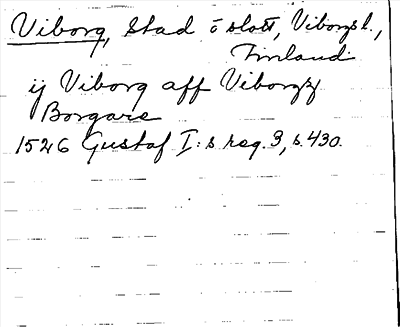 Viborg, Stad o slott, Viborgs l.,
Finland
ij Viborg aff Viborgx
Borgare
1526 Gustaf I:s reg. 3, s. 430.